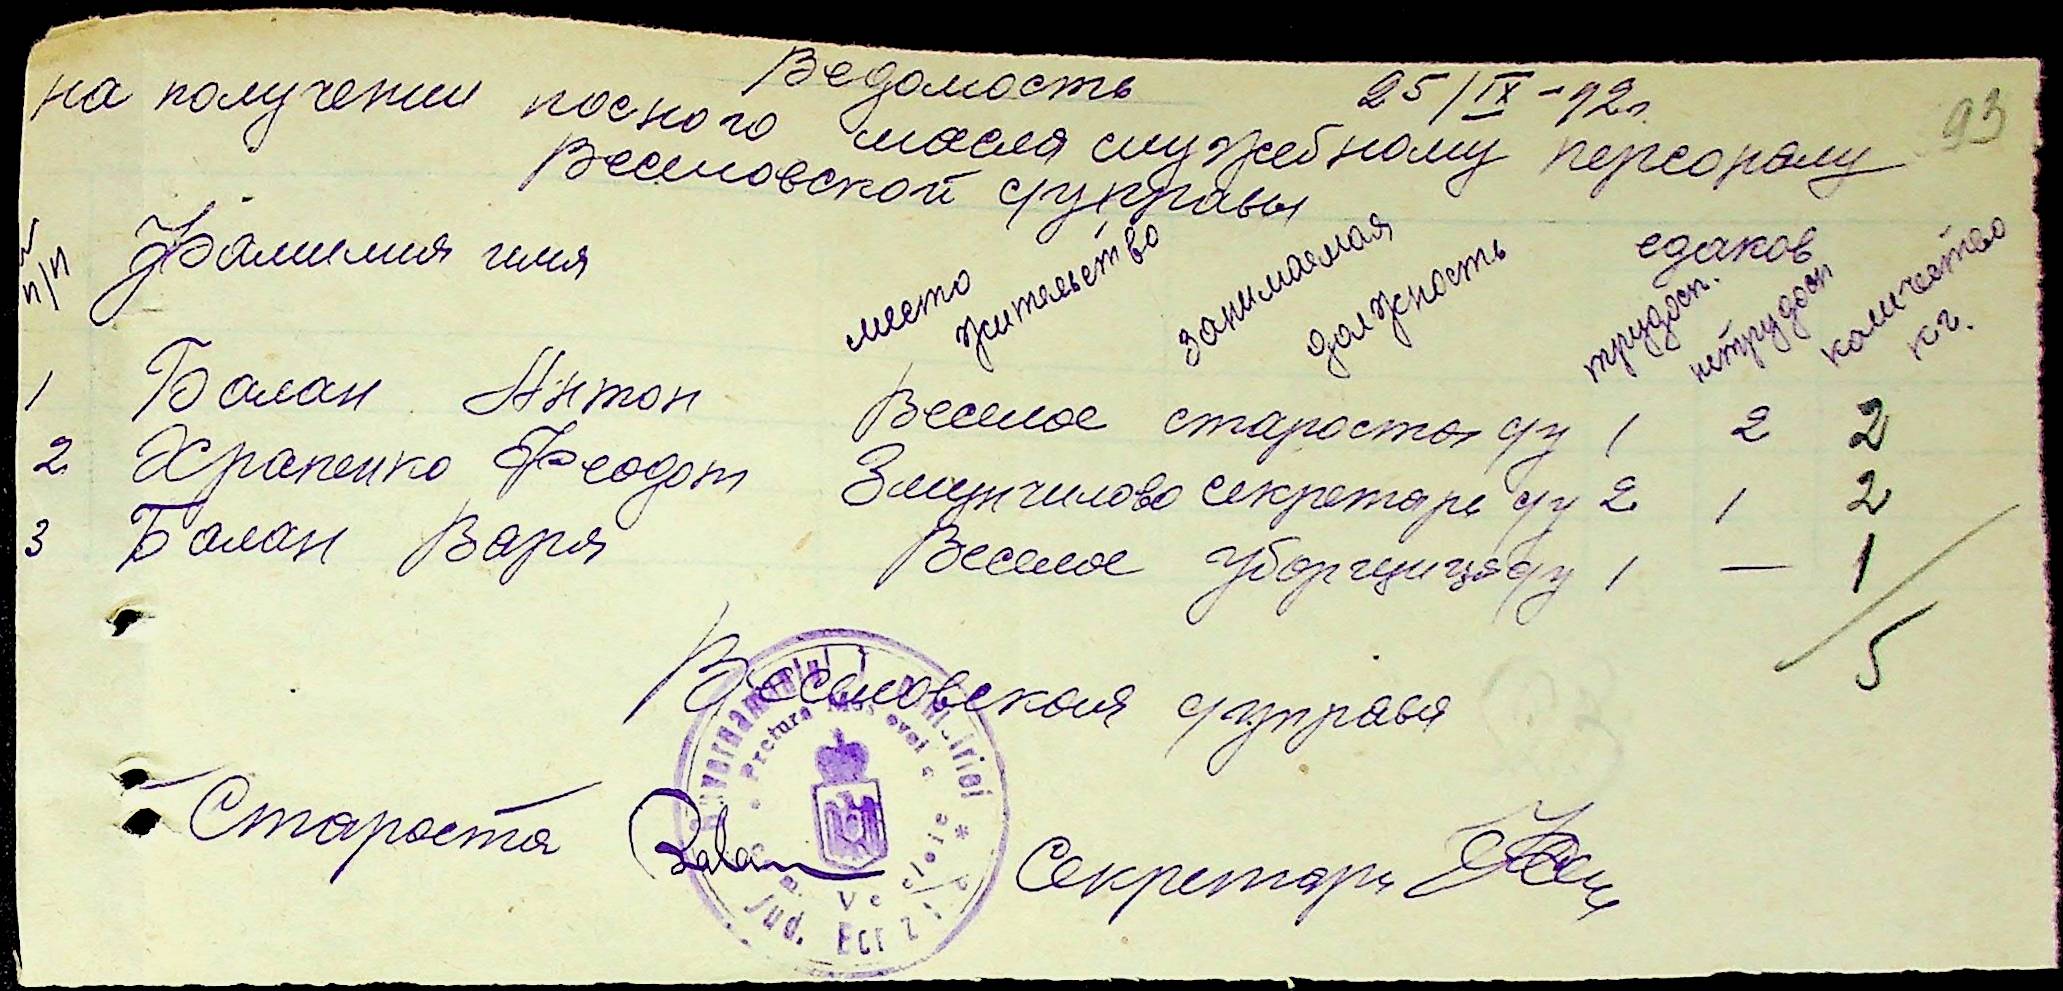 Ведомость 25/IX-42г.
на получении посного масла служебному персоналу 93
Веселовской с/управы
№ п/п Фамилия имя место жительство занимаемая должность едаков трудосп. нетрудосп количество кг.
1 Балан Антон Веселое староста с/у 1 2 2
2 Храпенко Феодот Злынчилово секретарь с/у 2 1 2
3 Балан Варя Веселое уборщица с/у 1 — 1
5
Веселовская с/управа
Староста Balan Секретарь
Guvernamantul
Pretura
Jud.